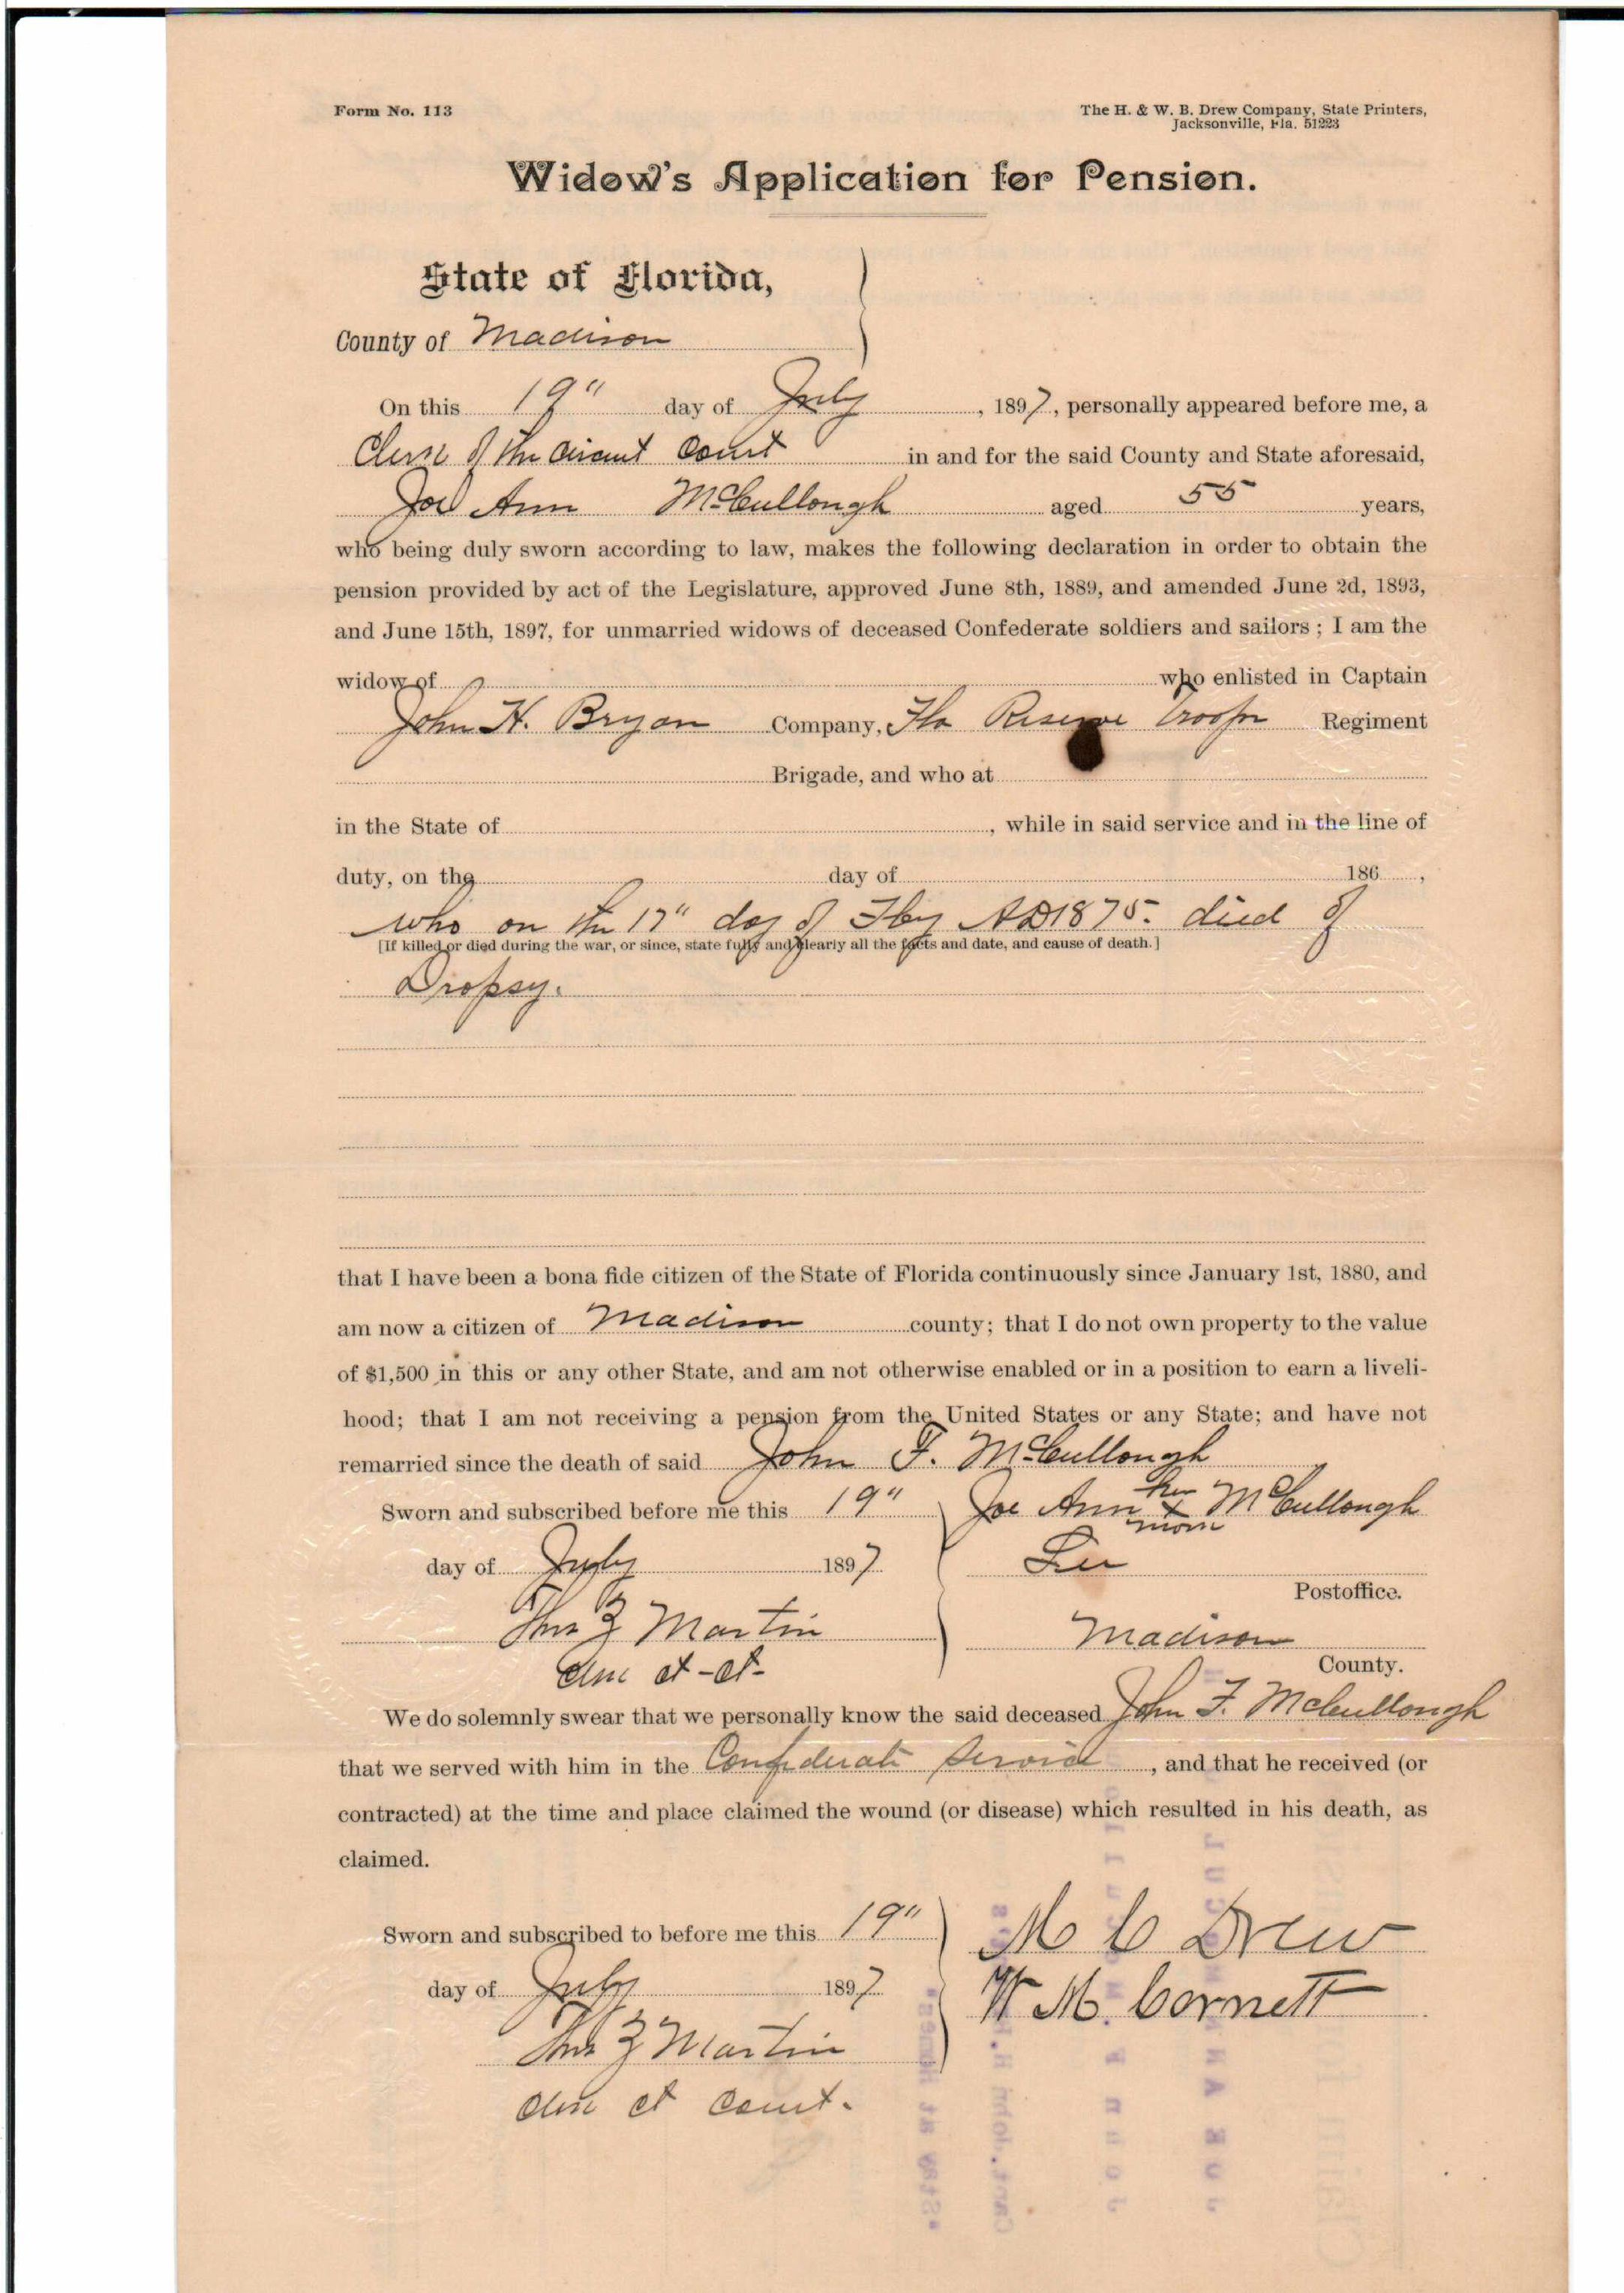 Form No. 113
The H. & W. B. Drew Company, State Printers,
Jacksonville, Fla. 51223
Widow's Application for Pension.
State of Florida,
County of Madison
On this 19" day of July, 1897, personally appeared before me, a
Clerk of the Circuit Court in and for the said County and State aforesaid,
Joe Ann McCullough aged 55 years,
who being duly sworn according to law, makes the following declaration in order to obtain the
pension provided by act of the Legislature, approved June 8th, 1889, and amended June 2d, 1893,
and June 15th, 1897, for unmarried widows of deceased Confederate soldiers and sailors; I am the
widow of who enlisted in Captain
John H. Bryan Company, Fla Reserve Troops Regiment
Brigade, and who at
in the State of , while in said service and in the line of
duty, on the day of 186 ,
who on the 17" day of Fby AD 1875. died of
[If killed or died during the war, or since, state fully and clearly all the facts and date, and cause of death.]
Dropsy.
that I have been a bona fide citizen of the State of Florida continuously since January 1st, 1880, and
am now a citizen of Madison county; that I do not own property to the value
of $1,500 in this or any other State, and am not otherwise enabled or in a position to earn a liveli-
hood; that I am not receiving a pension from the United States or any State; and have not
remarried since the death of said John F. McCullough
Sworn and subscribed before me this 19" Joe Ann her x mark McCullough
day of July 1897 Lee
Postoffice.
Thos Z Martin Madison
County.
Clk Ct - Ct -
We do solemnly swear that we personally know the said deceased John F. McCullough
that we served with him in the Confederate Service, and that he received (or
contracted) at the time and place claimed the wound (or disease) which resulted in his death, as
claimed.
Sworn and subscribed to before me this 19" M C Drew
day of July 1897 W M. Cornett
Thos Z Martin
Clk Ct Court.